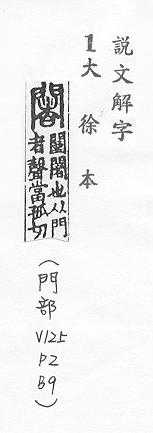 説文解字
1大徐本
闍
闉闍也从門
者聲當孤切
(門部
V125
P2
B9)